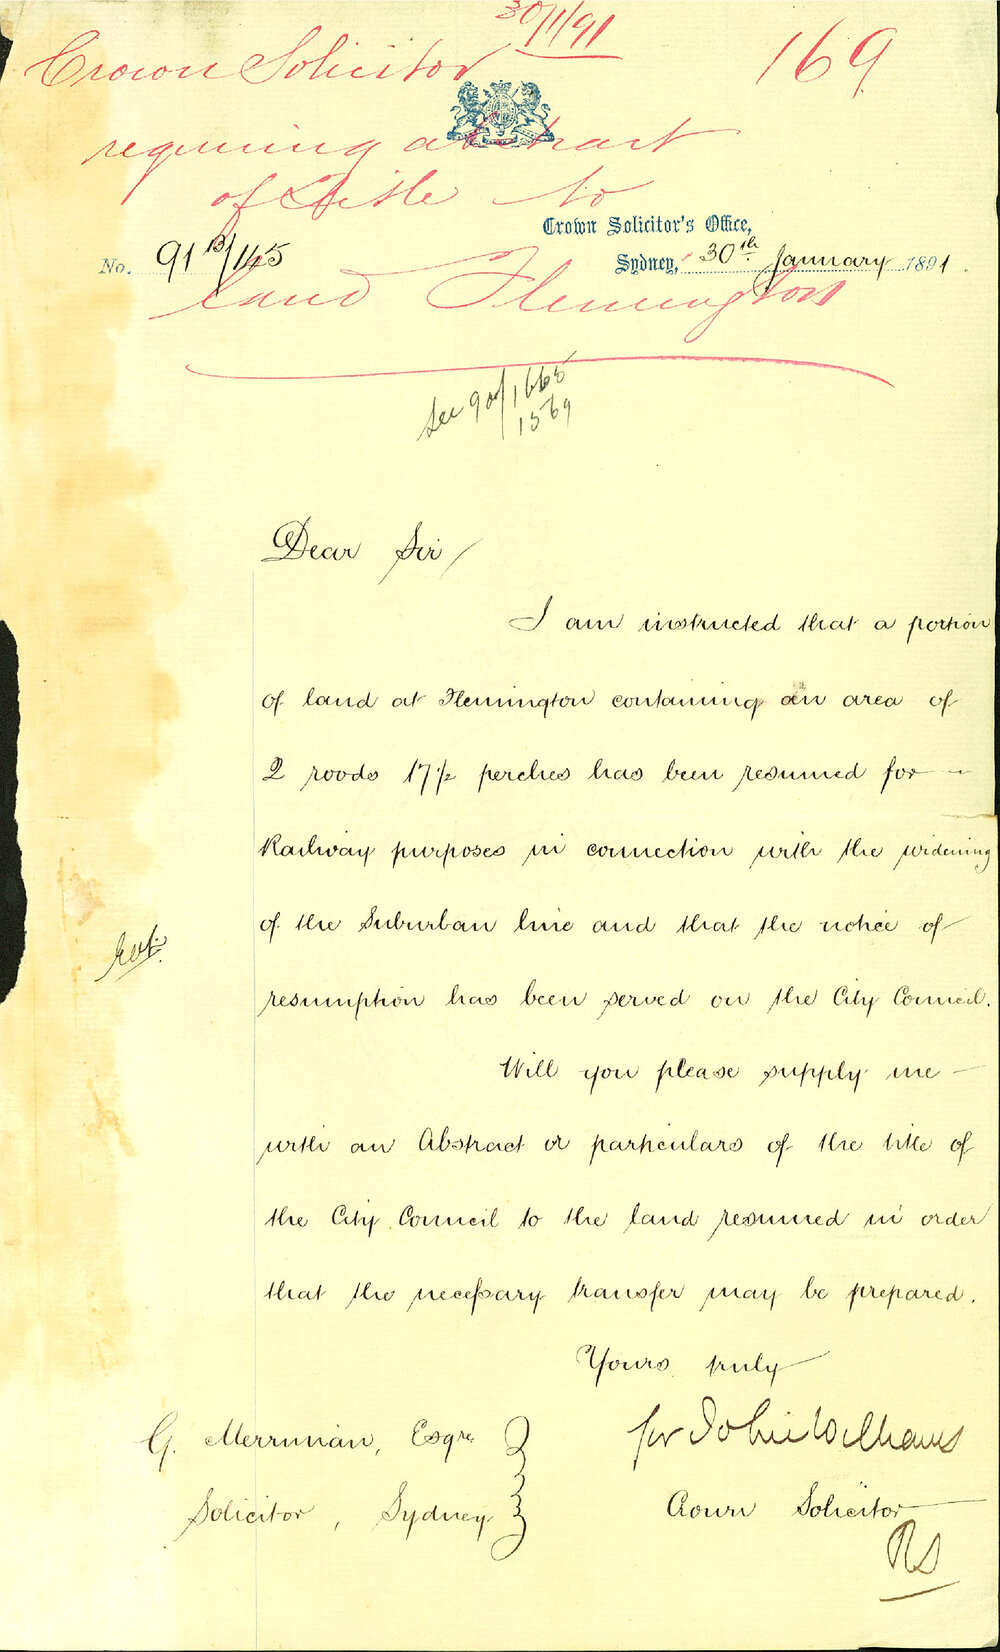 30/1/91
Crown Solicitor
169
requiring abstract
of Title to
land Flemington
Crown Solicitor's Office,
No. 91 B/145
Sydney, 30th January 1891.
See 90/1665
1569
Dear Sir/
I am instructed that a portion
of land at Flemington containing an area of
2 roods 17½ perches has been resumed for
Railway purposes in connection with the widening
of the Suburban line and that the notice of
resumption has been served on the City Council.
Will you please supply me
with an Abstract or particulars of the title of
the City Council to the land resumed in order
that the necessary transfer may be prepared.
Yours truly
for John Williams
Crown Solicitor
G. Merriman, Esqre
Solicitor, Sydney